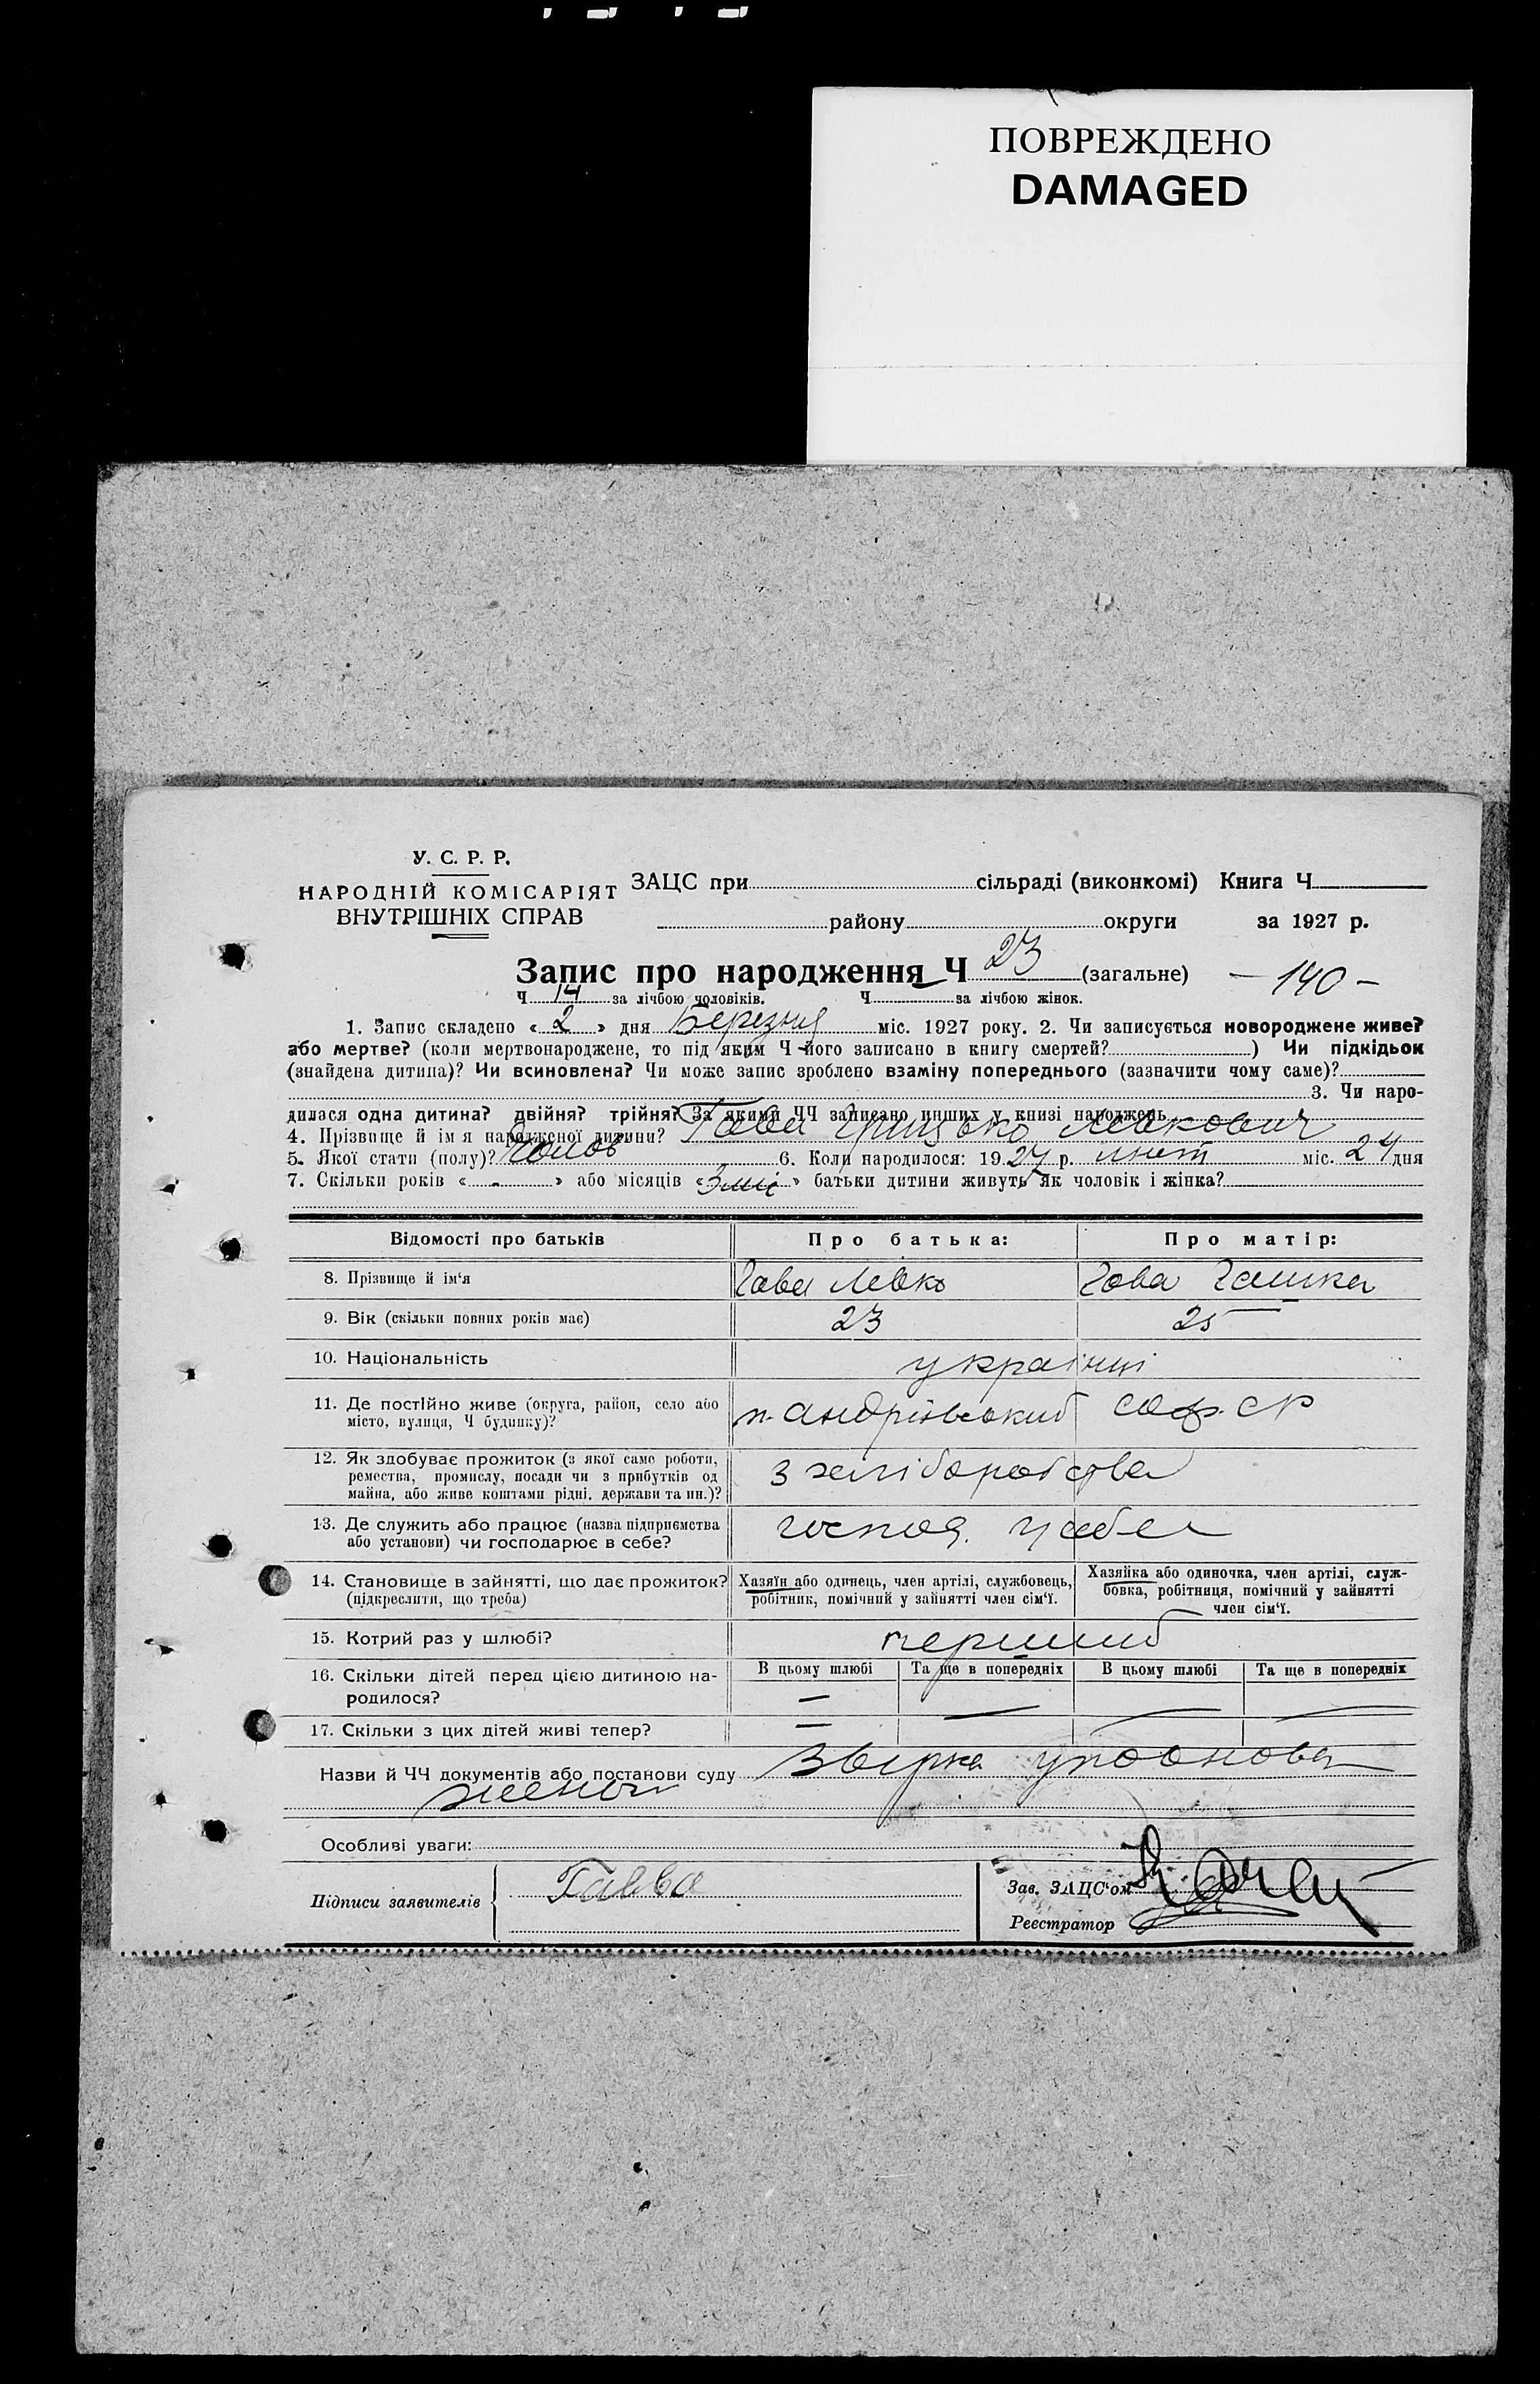 ПОВРЕЖДЕНО
DAMAGED
У. С. Р. Р.
НАРОДНІЙ КОМІСАРІЯТ
ВНУТРІШНІХ СПРАВ
ЗАЦС при сільраді (виконкомі) Книга Ч
району округи за 1927 р.
Запис про народження Ч 23 (загальне) — 140 —
Ч 14 за лічбою чоловіків. Ч за лічбою жінок.
1. Запис складено « 2 » дня Березня міс. 1927 року. 2. Чи записується новороджене живе?
або мертве? (коли мертвонароджене, то під яким Ч його записано в книгу смертей? ) Чи підкідьок
(знайдена дитина)? Чи всиновлена? Чи може запис зроблено взаміну попереднього (зазначити чому саме)?
3. Чи наро-
дилася одна дитина? двійня? трійня? За якими ЧЧ записано инших у книзі народжень
4. Прізвище й ім'я народженої дитини? Гава Грицько Левкович
5. Якої стати (полу)? Чолов 6. Коли народилося: 19 27 р. лют міс. 24 дня
7. Скільки років « - » або місяців « 3 міс » батьки дитини живуть як чоловік і жінка?
Відомості про батьків Про батька: Про матір:
8. Прізвище й ім'я Гава Левко Гава Галька
9. Вік (скільки повних років має) 23 25
10. Національність українці
11. Де постійно живе (округа, район, село або
місто, вулиця, Ч будинку)? х. Андріївський
12. Як здобуває прожиток (з якої саме роботи,
ремества, промислу, посади чи з прибутків од
майна, або живе коштами рідні, держави та ин.)? З хліборобства
13. Де служить або працює (назва підприємства
або установи) чи господарює в себе? господ. у себе
14. Становище в зайнятті, що дає прожиток?
(підкреслити, що треба)
Хазяїн або одинець, член артілі, службовець,
робітник, помічний у зайнятті член сім'ї.
Хазяйка або одиночка, член артілі, служ-
бовка, робітниця, помічний у зайнятті
член сім'ї.
15. Котрий раз у шлюбі? перший
16. Скільки дітей перед цією дитиною на-
родилося?
В цьому шлюбі Та ще в попередніх В цьому шлюбі Та ще в попередніх
— — — —
17. Скільки з цих дітей живі тепер? —
Назви й ЧЧ документів або постанови суду Звірка
Особливі уваги:
Підписи заявителів Гавва
Зав. ЗАЦС'ом
Реєстратор